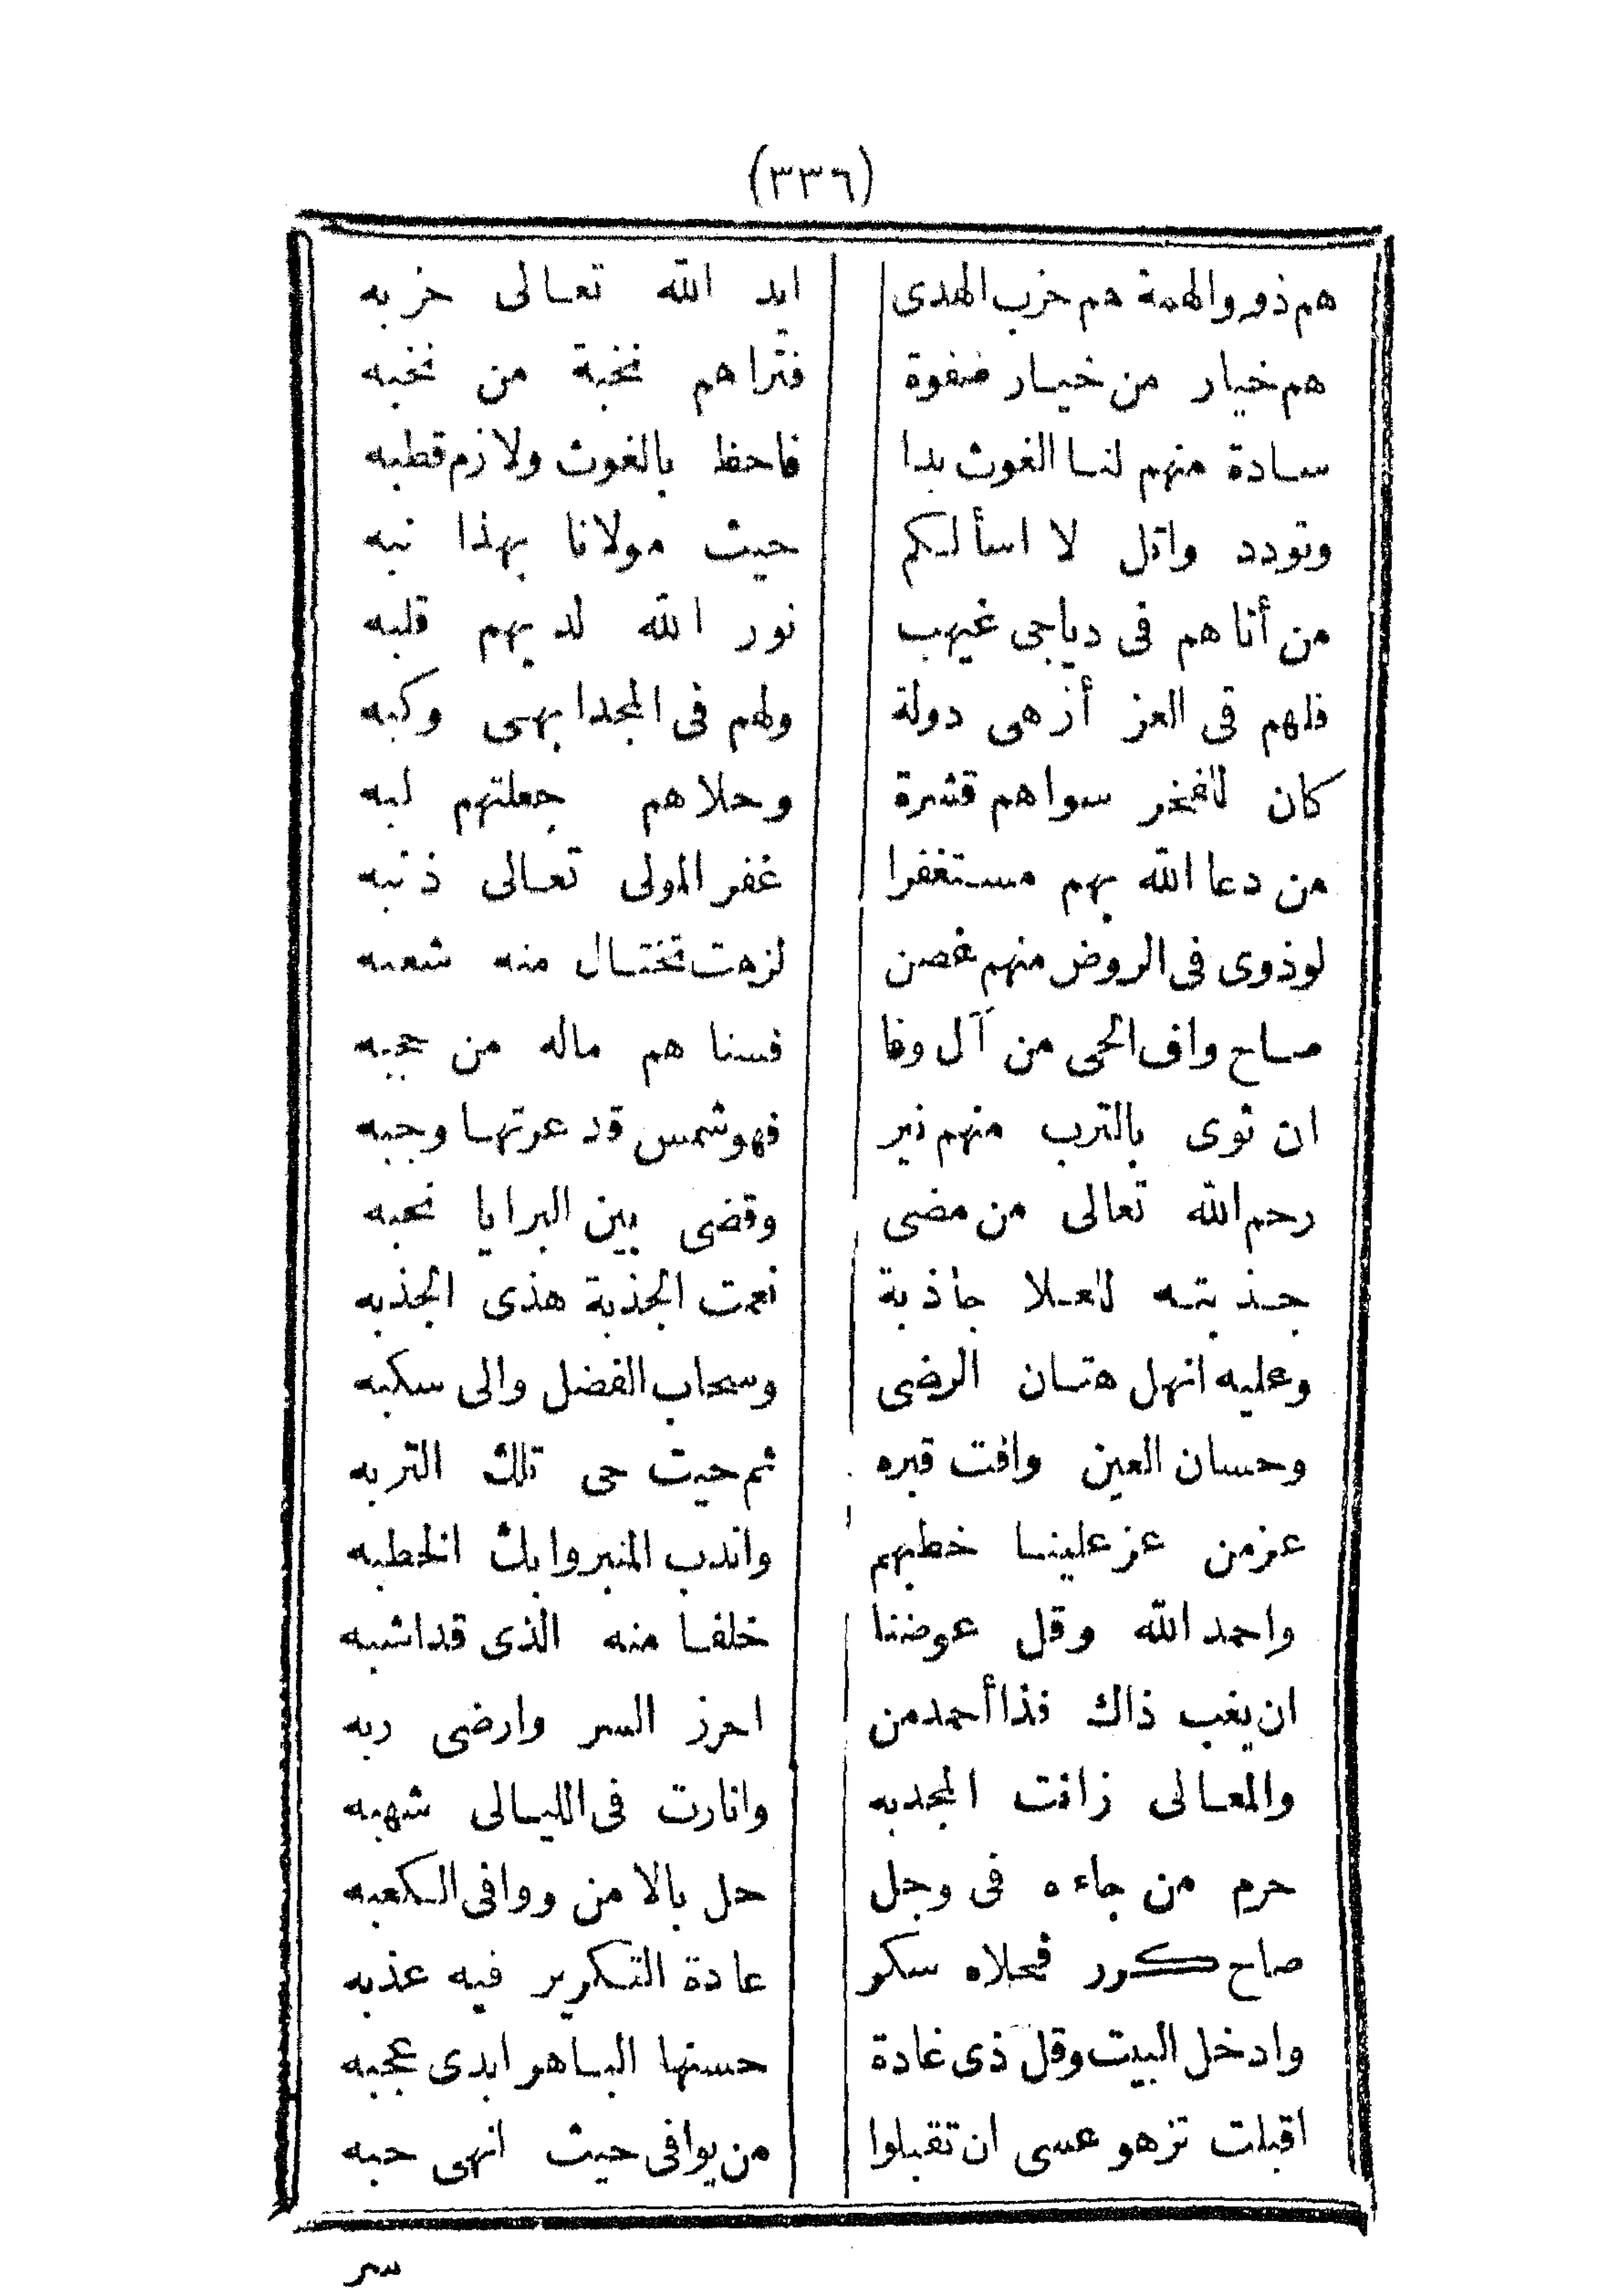 (٣٣٦)
هم ذو والهمة هم حزب الهدى ايد الله تعالى حزبه
هم خيار من خيار صفوة فتراهم نخبة من نخبه
سادة منهم لنا الغوث بدا فاحظ بالغوث ولازم قطبه
وتودد واتل لا اسألكم حيث مولانا بهذا نبه
من أتاهم فى دياجى غيهب نور الله لديهم قلبه
فلهم فى العز أزهى دولة ولهم فى المجد ابهى وكبه
كان للفخر سواهم قشرة وحلاهم جعلتهم لبه
من دعا الله بهم مستغفرا غفر المولى تعالى ذنبه
لوذوى فى الروض منهم غصن لزهت تختال منه شعبه
صاح واف الحى من آل وفا فسناهم ماله من حجبه
ان ثوى بالترب منهم نير فهو شمس قد عرتها وجبه
رحم الله تعالى من مضى وقضى بين البرايا نحبه
جذبته للعلا جاذبة نعمت الجذبة هذى الجذبه
وعليه انهل هتان الرضى وسحاب الفضل والى سكبه
وحسان العين وافت قبره ثم حيت حى تلك التربه
عز من عز علينا خطبهم واندب المنبر وابك الخطبه
واحمد الله وقل عوضنا خلفا منه الذى قد اشبه
ان يغب ذاك فذا أحمد من احرز السر وارضى ربه
والمعالى زانت المجد به وانارت فى الليالى شهبه
حرم من جاءه فى وجل حل بالامن ووافى الكعبه
صاح كرر فحلاه سكر عادة التكرير فيه عذبه
وادخل البيت وقل ذى غادة حسنها الباهر ابدى عجبه
اقبلت تزهو عسى ان تقبلوا من يوافى حيث انهى حبه
سر